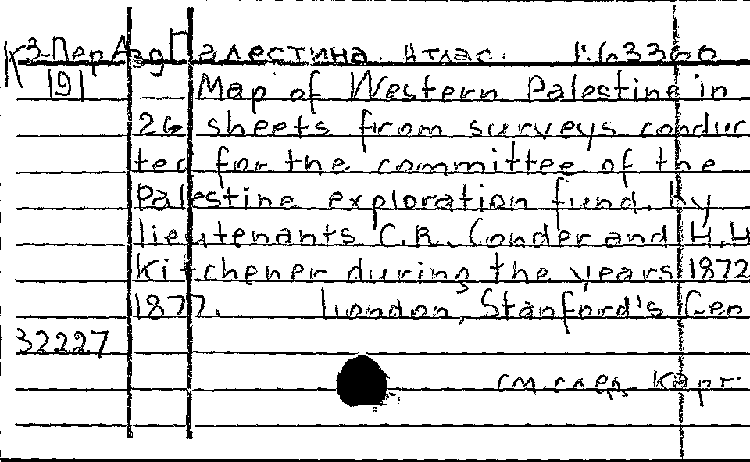 К3-ПерАзд Палестина. Атлас. 1:63360
191 Map of Western Palestine in
26 sheets from surveys conduc
ted for the committee of the
Palestine exploration fund. by
lieutenants C.R. Conder and H.H
Kitchener during the years 1872
1877. London, Stanford's Geo
32227
см. след. карт.